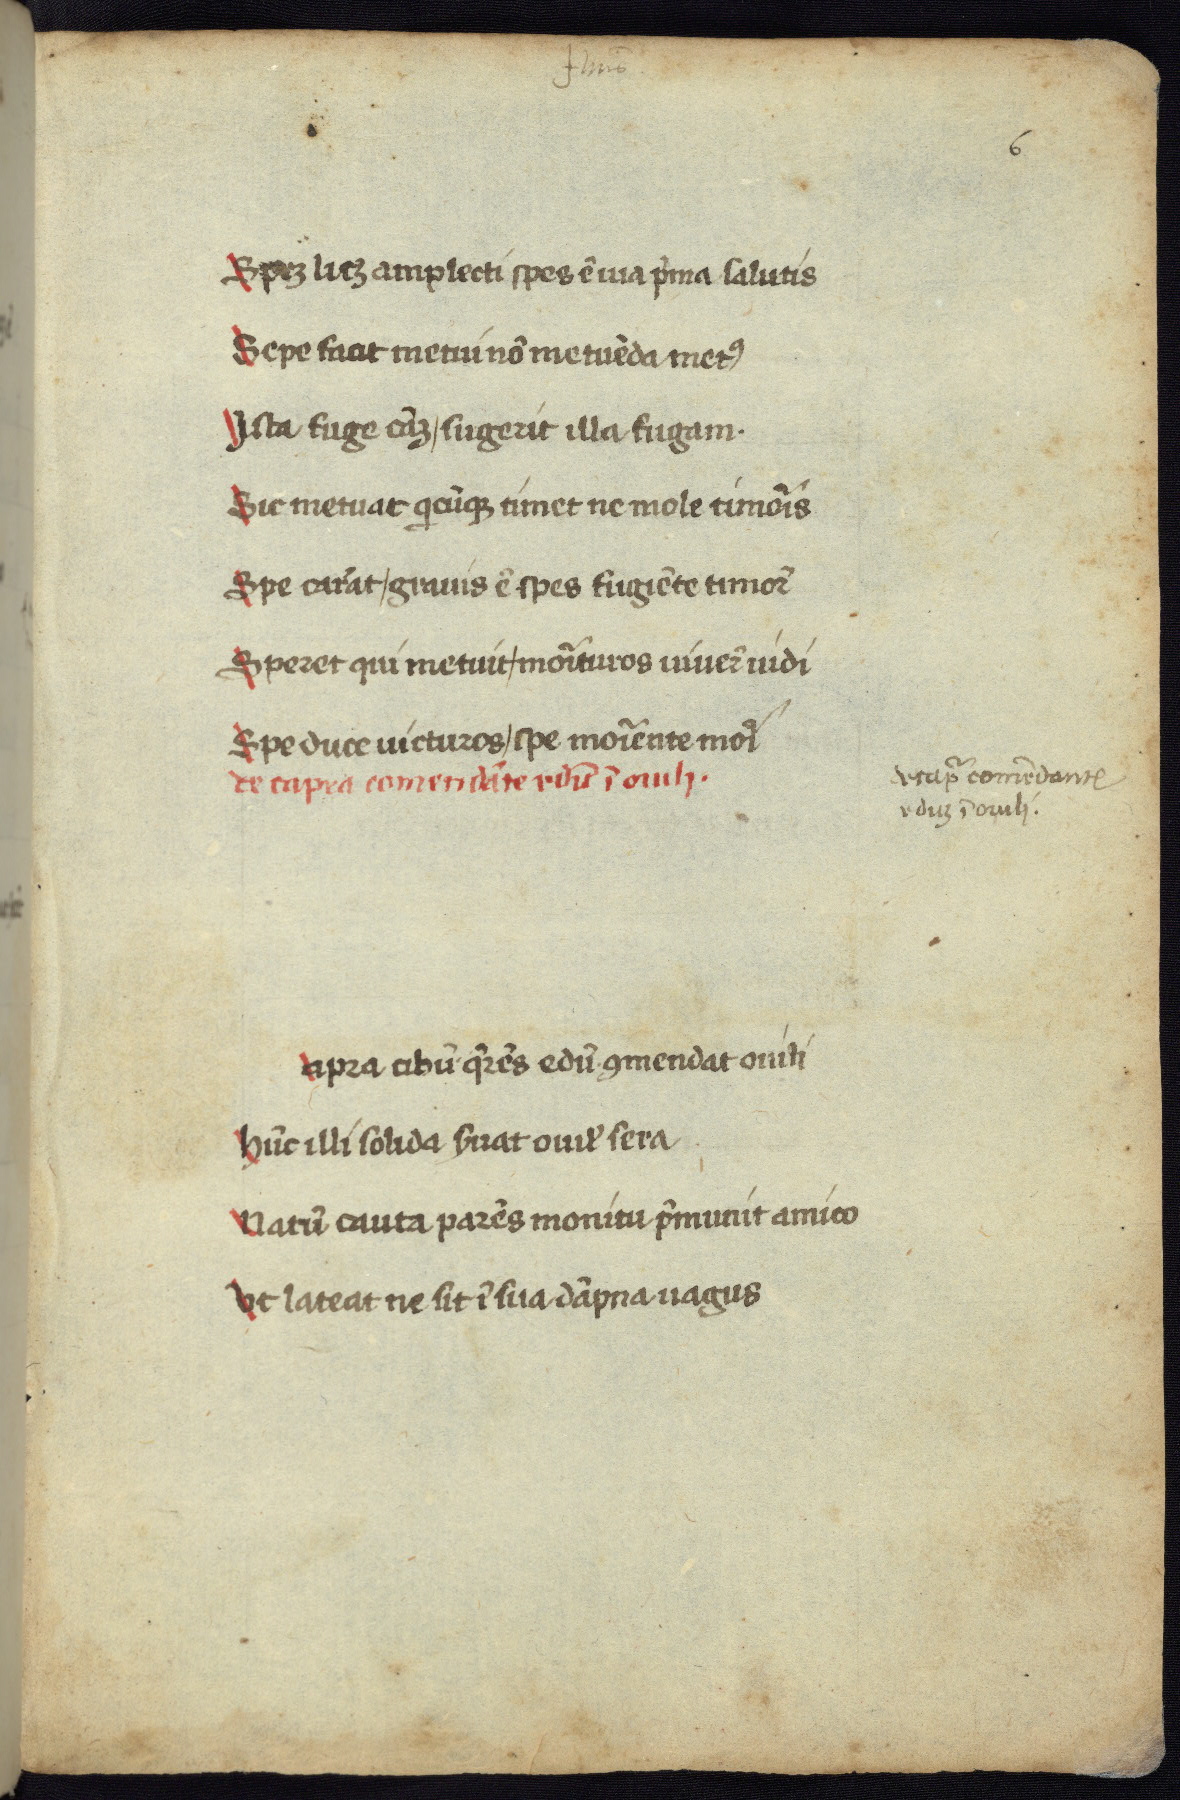 6
Speꝫ licꝫ amplecti spes ē uia p̄ma salutis
Sepe facit metui nō metuēda metꝰ
Ista fuge cūꝫ / sugerit illa fugam.
Sic metuat qͥcūqꝫ timet ne mole timoris
Spe careat / grauis ē spes fugiēte timor̄
Speret qui metuit / morituros uiuer̄ uidi
Spe duce uicturos / spe moriente mori
de capra comendāte edū ī ouili.
de capͣ comēdante
eduꝫ ī ouili.
apra cibū q̄rēs edū ꝯmendat ouili
hūc illi solida s̄uat ouil̄ sera
Natū cauta parēs monitu p̄munit amico
Vt lateat ne sit ī sua dāpna uagus